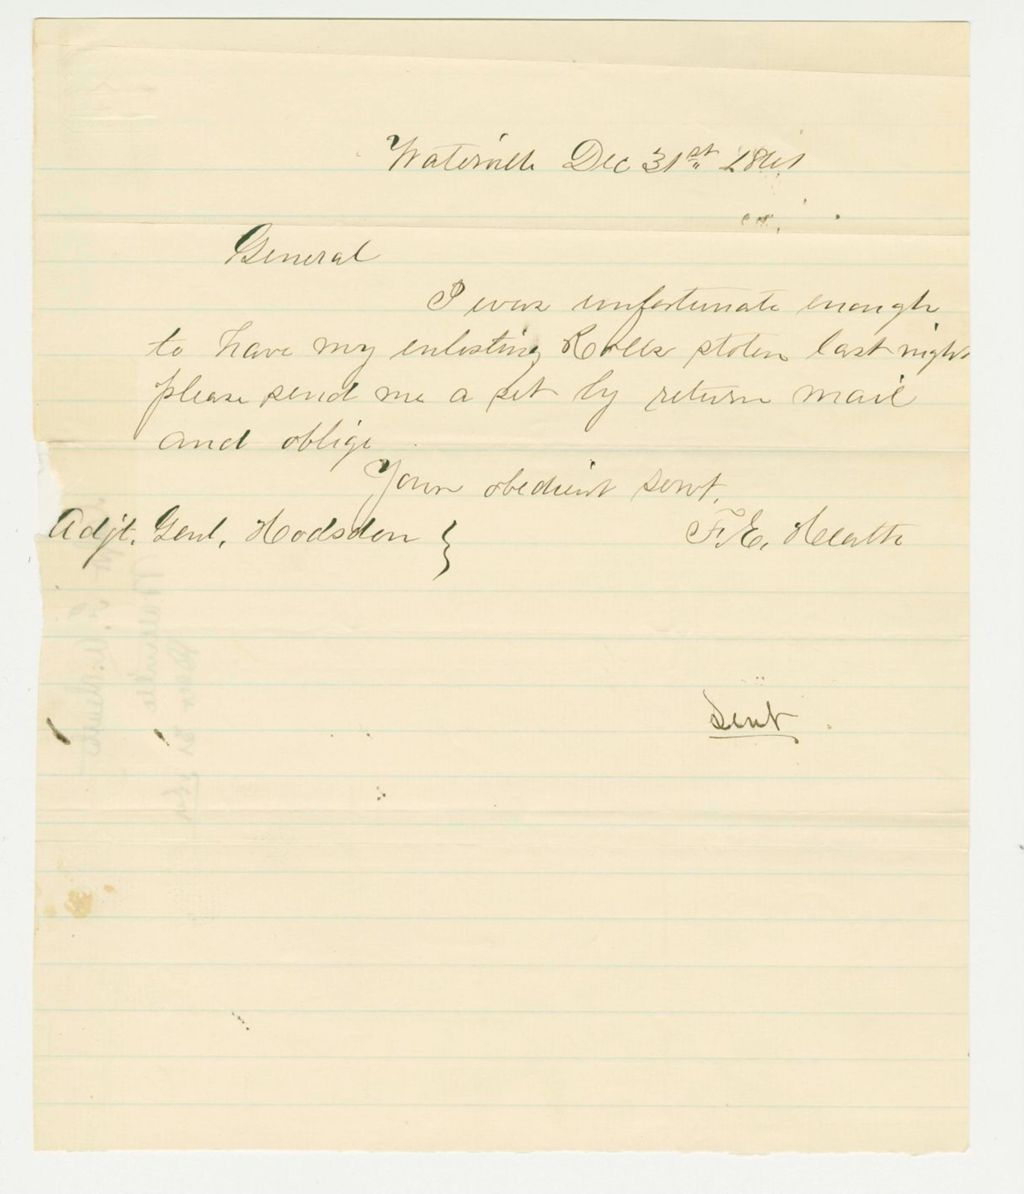 Waterville Dec 31st 1861
General
I was unfortunate enough
to have my enlisting Rolls stolen last night
please send me a set by return mail
and oblige
Your obedient servt,
Adjt. Genl. Hodsdon }
F. E. Heath
Sent